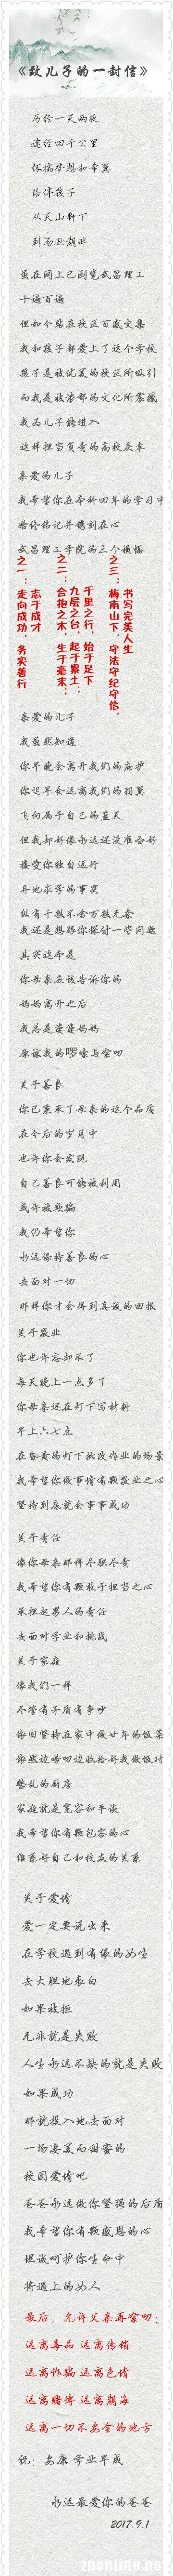 《致儿子的一封信》
历经一天两夜
途经四千公里
怀揣梦想和希冀
陪伴孩子
从天山脚下
到汤逊湖畔
虽在网上已浏览武昌理工
十遍百遍
但如今站在校区百感交集
我和孩子都爱上了这个学校
孩子是被优美的校区所吸引
而我是被浓郁的文化所震撼
我为儿子能进入
这样担当负责的高校庆幸
亲爱的儿子
我希望你在本科四年的学习中
始终铭记并镌刻在心
武昌理工学院的三个横幅
之一：
志于成才
走向成功，务实善行
之二：
千里之行，始于足下
九层之台，起于累土；
合抱之木，生于毫末；
之三：
书写完美人生
梅南山下，守法守纪守信，
亲爱的儿子
我虽然知道
你早晚会离开我们的庇护
你迟早会远离我们的羽翼
飞向属于自己的蓝天
但我却好像永远还没准备好
接受你独自远行
异地求学的事实
纵有千般不舍万般无奈
我还是想跟你探讨一些问题
其实这本是
你母亲应该告诉你的
妈妈离开之后
我总是婆婆妈妈
原谅我的啰嗦与唠叨
关于善良
你已秉承了母亲的这个品质
在今后的岁月中
也许你会发现
自己善良可能被利用
或许被欺骗
我仍希望你
永远保持善良的心
去面对一切
那样你才会得到真诚的回报
关于敬业
你也许忘却不了
每天晚上一点多了
你母亲还在灯下写材料
早上六七点
在昏黄的灯下批改作业的场景
我希望你做事情有颗敬业之心
坚持到底就会事事成功
关于责任
像你母亲那样尽职尽责
我希望你有颗敢于担当之心
承担起男人的责任
去面对学业和挑战
关于家庭
像我们一样
尽管有矛盾有争吵
依旧坚持在家中做廿年的饭菜
依然边唠叨边收拾好我做饭时
整乱的厨房
家庭就是宽容和平谈
我希望你有颗包容的心
维系好自己和校友的关系
关于爱情
爱一定要说出来
在学校遇到有缘的女生
去大胆地表白
如果被拒
无非就是失败
人生永远不缺的就是失败
如果成功
那就投入地去面对
一场凄美而甜蜜的
校园爱情吧
爸爸永远做你坚强的后盾
我希望你有颗感恩的心
坦诚呵护你生命中
将遇上的女人
最后，允许父亲再唠叨：
远离毒品 远离传销
远离诈骗 远离色情
远离赌博 远离湖海
远离一切不安全的地方
祝：安康 学业早成
永远最爱你的爸爸
2017.9.1
znonline.net